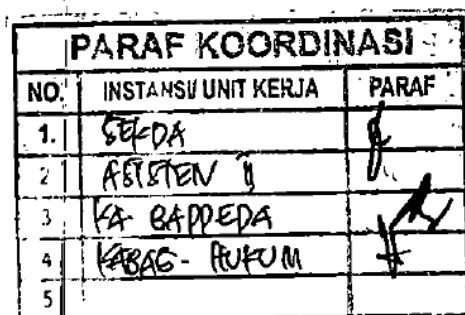 PARAF KOORDINASI
NO. INSTANSI/UNIT KERJA PARAF
1. SEKDA
2 ASISTEN II
3 KA BAPPEDA
4 KABAG - HUKUM
5